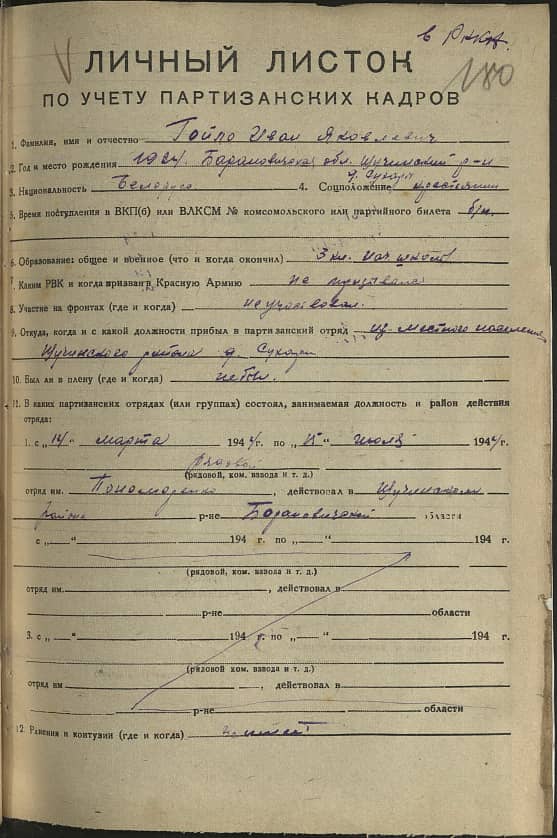 в РККА.
180
ЛИЧНЫЙ ЛИСТОК
ПО УЧЕТУ ПАРТИЗАНСКИХ КАДРОВ
1. Фамилия, имя и отчество Гойло Иван Яковлевич
2. Год и место рождения 1924 Барановичская обл. Щучинский р-н
д. Сухари
3. Национальность Белорус 4. Соцположение крестьянин
5. Время поступления в ВКП(б) или ВЛКСМ № комсомольского или партийного билета б/п.
6. Образование: общее и военное (что и когда окончил) 3 кл. нач школы
7. Каким РВК и когда призван в Красную Армию не призывался
8. Участие на фронтах (где и когда) не участвовал.
9. Откуда, когда и с какой должности прибыл в партизанский отряд из местного населения
Щучинского района д. Сухари
10. Был ли в плену (где и когда) не был.
11. В каких партизанских отрядах (или группах) состоял, занимаемая должность и район действия
отряда:
1. с „14“ марта 1944г. по „ “ июля 1944г.
рядовой
(рядовой, ком. взвода и т. д.)
отряд им. Пономаренко, действовал в Щучинском
районе р-не Барановичской области
с „ “ 194 г. по „ “ 194 г.
(рядовой, ком. взвода и т. д.)
отряд им. , действовал в
р-не области
3. с „ “ 194 г. по „ “ 194 г.
(рядовой, ком. взвода и т. д.)
отряд им. , действовал в
р-не области
12. Ранения и контузии (где и когда) не имеет